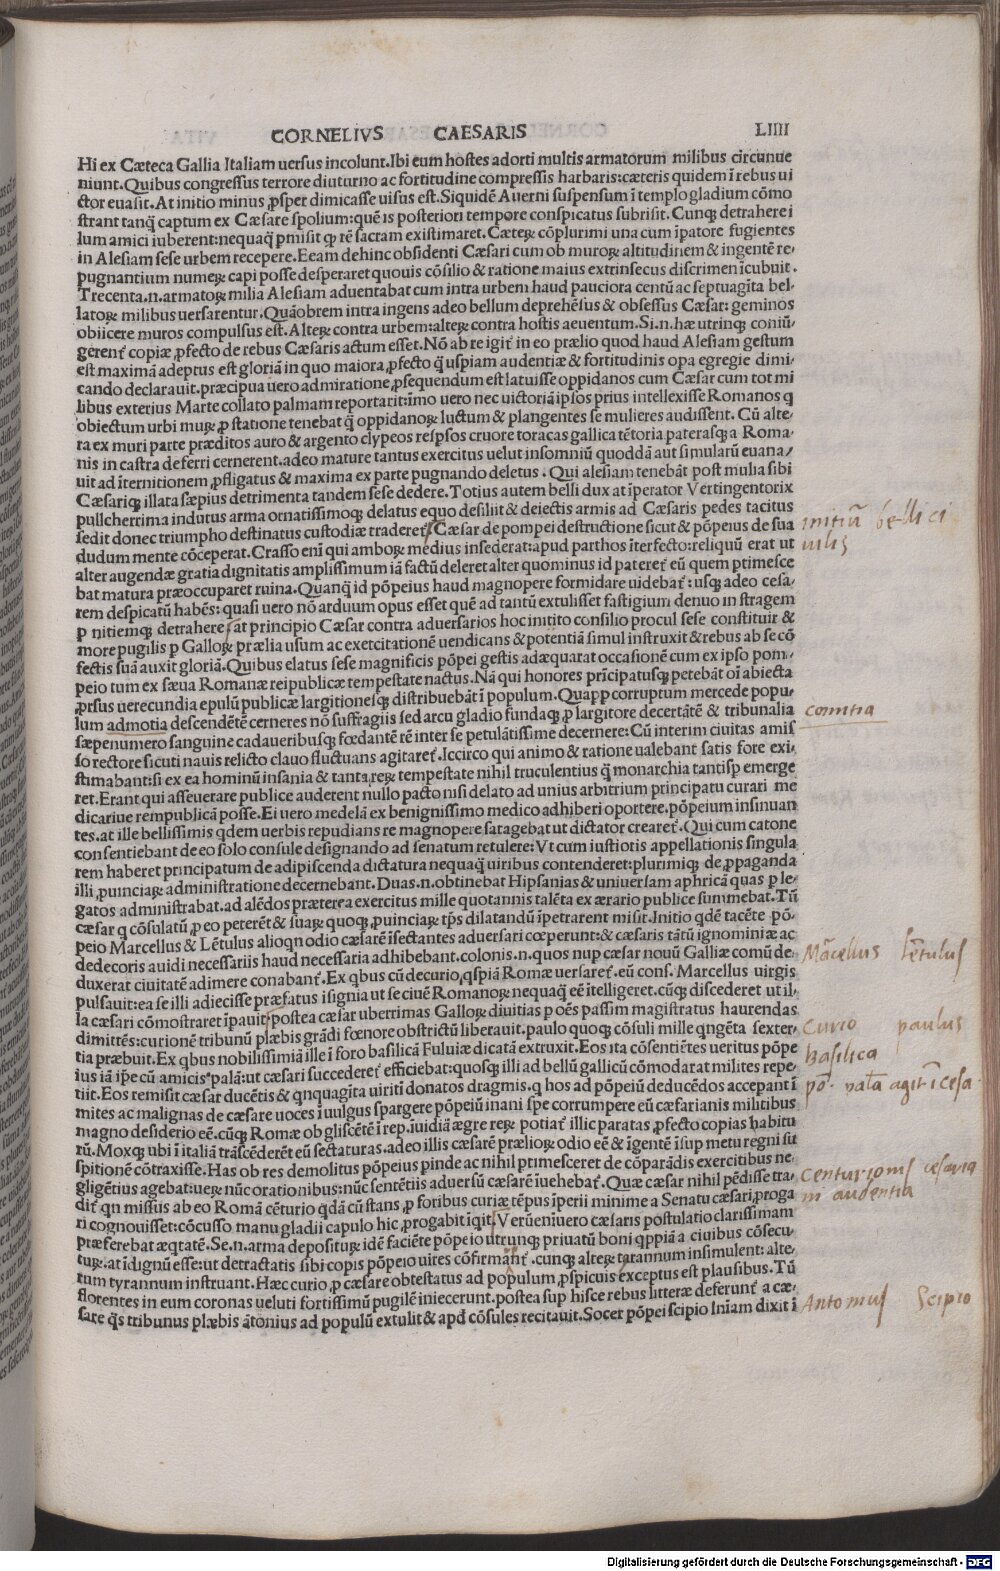 CORNELIVS CAESARIS LIIII
Hi ex Cæteca Gallia Italiam uersus incolunt. Ibi eum hostes adorti multis armatorum milibus circunue
niunt. Quibus congressus terrore diuturno ac fortitudine compressis harbaris: cæteris quidem ī rebus ui
ctor euasit. At initio minus ꝓsper dimicasse uisus est. Siquidē Auerni suspensum ī templo gladium cōmo
strant tanq̄ captum ex Cæsare spolium: quē is posteriori tempore conspicatus subrisit. Cunqꝫ detrahere i
lum amici iuberent: nequaq̄ pmisit qp rē sacram existimaret. Cæteꝝ cōplurimi una cum īpatore fugientes
in Alesiam sese urbem recepere. Eeam dehinc obsidenti Cæsari cum ob muroꝝ altitudinem & ingentē re-
pugnantium numeꝝ capi posse desperaret quouis cōsilio & ratione maius extrinsecus discrimen īcubuit.
Trecenta .n. armatoꝝ milia Alesiam aduentabat cum intra urbem haud pauciora centū ac septuagīta bel-
latoꝝ milibus uersarentur. Quāobrem intra ingens adeo bellum deprehēsus & obsessus Cæsar: geminos
obiicere muros compulsus est. Alteꝝ contra urbem: alteꝝ contra hostis aeuentum. Si .n. hæ utrinqꝫ coniū
gerent̄ copiæ ꝓfecto de rebus Cæsaris actum esset. Nō ab re igit̄ in eo prælio quod haud Alesiam gestum
est maximā adeptus est gloriā in quo maiora ꝓfecto q̄ uspiam audentiæ & fortitudinis opa egregie dimi-
cando declarauit. præcipua uero admiratione ꝓsequendum est latuisse oppidanos cum Cæsar cum tot mi
libus exterius Marte collato palmam reportarit: īmo uero nec uictoriā ipsos prius intellexisse Romanos q
obiectum urbi muꝝ ꝓ statione tenebat q̄ oppidanoꝝ luctum & plangentes se mulieres audissent. Cū alte-
ra ex muri parte præditos auro & argento clypeos respsos cruore toracas gallica tētoria paterasqꝫ a Roma-
nis in castra deferri cernerent. adeo mature tantus exercitus uelut insomniū quoddā aut simularū euana/
uit ad īternitionem ꝓfligatus & maxima ex parte pugnando deletus. Qui alesiam tenebāt post mulia sibi
Cæsariqꝫ illata sæpius detrimenta tandem sese dedere. Totius autem belli dux at īperator Vertingentorix
pullcherrima indutus arma ornatissimoqꝫ delatus equo desiliit & deiectis armis ad Cæsaris pedes tacitus
sedit donec triumpho destinatus custodiæ traderet̄. Cæsar de pompei destructione sicut & pōpeius de sua
dudum mente cōceperat. Crasso enī qui amboꝝ medius insederat: apud parthos īterfecto: reliquū erat ut
alter augendæ gratia dignitatis amplissimum iā factū deleret alter quominus id pateret̄ eū quem ptimesce
bat matura præoccuparet ruina. Quanq̄ id pōpeius haud magnopere formidare uidebat̄: usqꝫ adeo cesa-
rem despicatū habēs: quasi uero nō arduum opus esset quē ad tantū extulisset fastigium denuo in stragem
p nitiemqꝫ detrahere at principio Cæsar contra aduersarios hoc initito consilio procul sese constituir &
more pugilis p Galloꝝ prælia usum ac exercitationē uendicans & potentiā simul instruxit & rebus ab se cō
fectis suā auxit gloriā. Quibus elatus sese magnificis pōpei gestis adæquarat occasionē cum ex ipso pom-
peio tum ex sæua Romanæ reipublicæ tempestate nactus. Nā qui honores prīcipatusqꝫ petebāt oī abiecta
ꝓrsus uerecundia epulū publicæ largitionesqꝫ distribuebāt ī populum. Quapp corruptum mercede popu-
lum admotia descendētē cerneres nō suffragiis sed arcu gladio fundaqꝫ ꝓ largitore decertātē & tribunalia
sæpenumero sanguine cadaueribusqꝫ fœdantē rē inter se petulātissime decernere: Cū interim ciuitas amis
so rectore sicuti nauis relicto clauo fluctuans agitaret̄. Iccirco qui animo & ratione ualebant satis fore exi-
stimabant: si ex ea hominū insania & tanta reꝝ tempestate nihil truculentius q̄ monarchia tantisp emerge
ret. Erant qui asseuerare publice auderent nullo pacto nisi delato ad unius arbitrium principatu curari me
dicariue rempublicā posse. Ei uero medelā ex benignissimo medico adhiberi oportere. pōpeium insinuan
tes. at ille bellissimis qdem uerbis repudians re magnopere satagebat ut dictator crearet̄. Qui cum catone
consentiebant de eo solo consule designando ad senatum retulere: Vt cum iustiotis appellationis singula
rem haberet principatum de adipiscenda dictatura nequaq̄ uiribus contenderet: plurimiqꝫ de ꝓpaganda
illi ꝓuinciaꝝ administratione decernebant. Duas .n. obtinebat Hipsanias & uniuersam aphricā quas p le-
gatos administrabat. ad alēdos præterea exercitus mille quotannis talēta ex ærario publice summebat. Tū
cæsar q cōsulatū ꝓ eo peterēt & suaꝝ quoqꝫ ꝓuinciaꝝ tp̄s dilatandū īpetrarent misit. Initio qdē tacēte pō-
peio Marcellus & Lētulus alioqn odio cæsarē īsectantes aduersari cœperunt: & cæsaris tātū ignominiæ ac
dedecoris auidi necessariis haud necessaria adhibebant. colonis .n. quos nup cæsar nouū Galliæ comū de-
duxerat ciuitatē adimere conabant̄. Ex qbus cū decurio qspiā Romæ uersaret̄. eū cons. Marcellus uirgis
pulsauit: ea se illi adiecisse præfatus isignia ut se ciuē Romanoꝝ nequaq̄ eē ītelligeret. cūqꝫ discederet ut il-
la cæsari cōmostraret īpauit postea cæsar uberrimas Galloꝝ diuitias p oēs passim magistratus haurendas
dimittēs: curionē tribunū plæbis grādi fœnore obstrictū liberauit. paulo quoqꝫ cōsuli mille qngēta sexter-
tia præbuit. Ex qbus nobilissimiā ille ī foro basilicā Fuluiæ dicatā extruxit. Eos ita cōsentiētes ueritus pōpe
ius iā ip̄e cū amicis palā: ut cæsari succederet̄ efficiebat: quosqꝫ illi ad bellū gallicū cōmodarat milites repe-
tiit. Eos remisit cæsar ducētis & qnquagīta uiritī donatos dragmis. q hos ad pōpeiū deducēdos accepant ī
mites ac malignas de cæsare uoces ī uulgus spargere pōpeiū inani spe corrumpere eū cæsarianis militibus
magno desiderio eē. cūqꝫ Romæ ob gliscētē ī rep. īuidiā ægre reꝝ potiat̄ illic paratas ꝓfecto copias habitu
rū. Moxqꝫ ubi ī italiā trāscēderēt eū sectaturas. adeo illis cæsarē prælioꝝ odio eē & īgentē īsup metu regni su
spitionē cōtraxisse. Has ob res demolitus pōpeius pinde ac nihil ptimesceret de cōparādis exercitibus ne-
gligētius agebat: ueꝝ nūc orationibus: nūc sentētiis aduersū cæsarē īuehebat̄. Quæ cæsar nihil pēdisse tra-
dit̄ qn missus ab eo Romā cēturio qdā cū stans ꝓ foribus curiæ tēpus īperii minime a Senatu cæsari ꝓroga
ri cognouisset: cōcusso manu gladii capulo hic ꝓrogabit iqit. Verūeniuero cæsaris postulatio clarissimam
præferebat æqtatē. Se .n. arma deposituꝝ idē faciēte pōpeio utrunqꝫ priuatū boni qppiā a ciuibus cōsecu-
tuꝝ. at īdignū esse: ut detractatis sibi copis pōpeio uires cōfirmant̄. cunqꝫ alteꝝ tyrannum insimulent: alte-
rum tyrannum instruant. Hæc curio ꝓ cæsare obtestatus ad populum ꝓspicuis exceptus est plausibus. Tū
florentes in eum coronas ueluti fortissimū pugilē iniecerunt. postea sup hisce rebus litteræ deferunt̄ a cæ-
sare q̄s tribunus plæbis ātonius ad populū extulit & apd cōsules recitauit. Socer pōpei scipio lniam dixit ī
initiū belli ci
uilis
comitia
Marcellus Lētulus
Curio paulus
basilica
pō. palā agit ī cesa.
Centurionis cesaria
ni audentia
Antonius Scipio
Digitalisierung gefördert durch die Deutsche Forschungsgemeinschaft - DFG